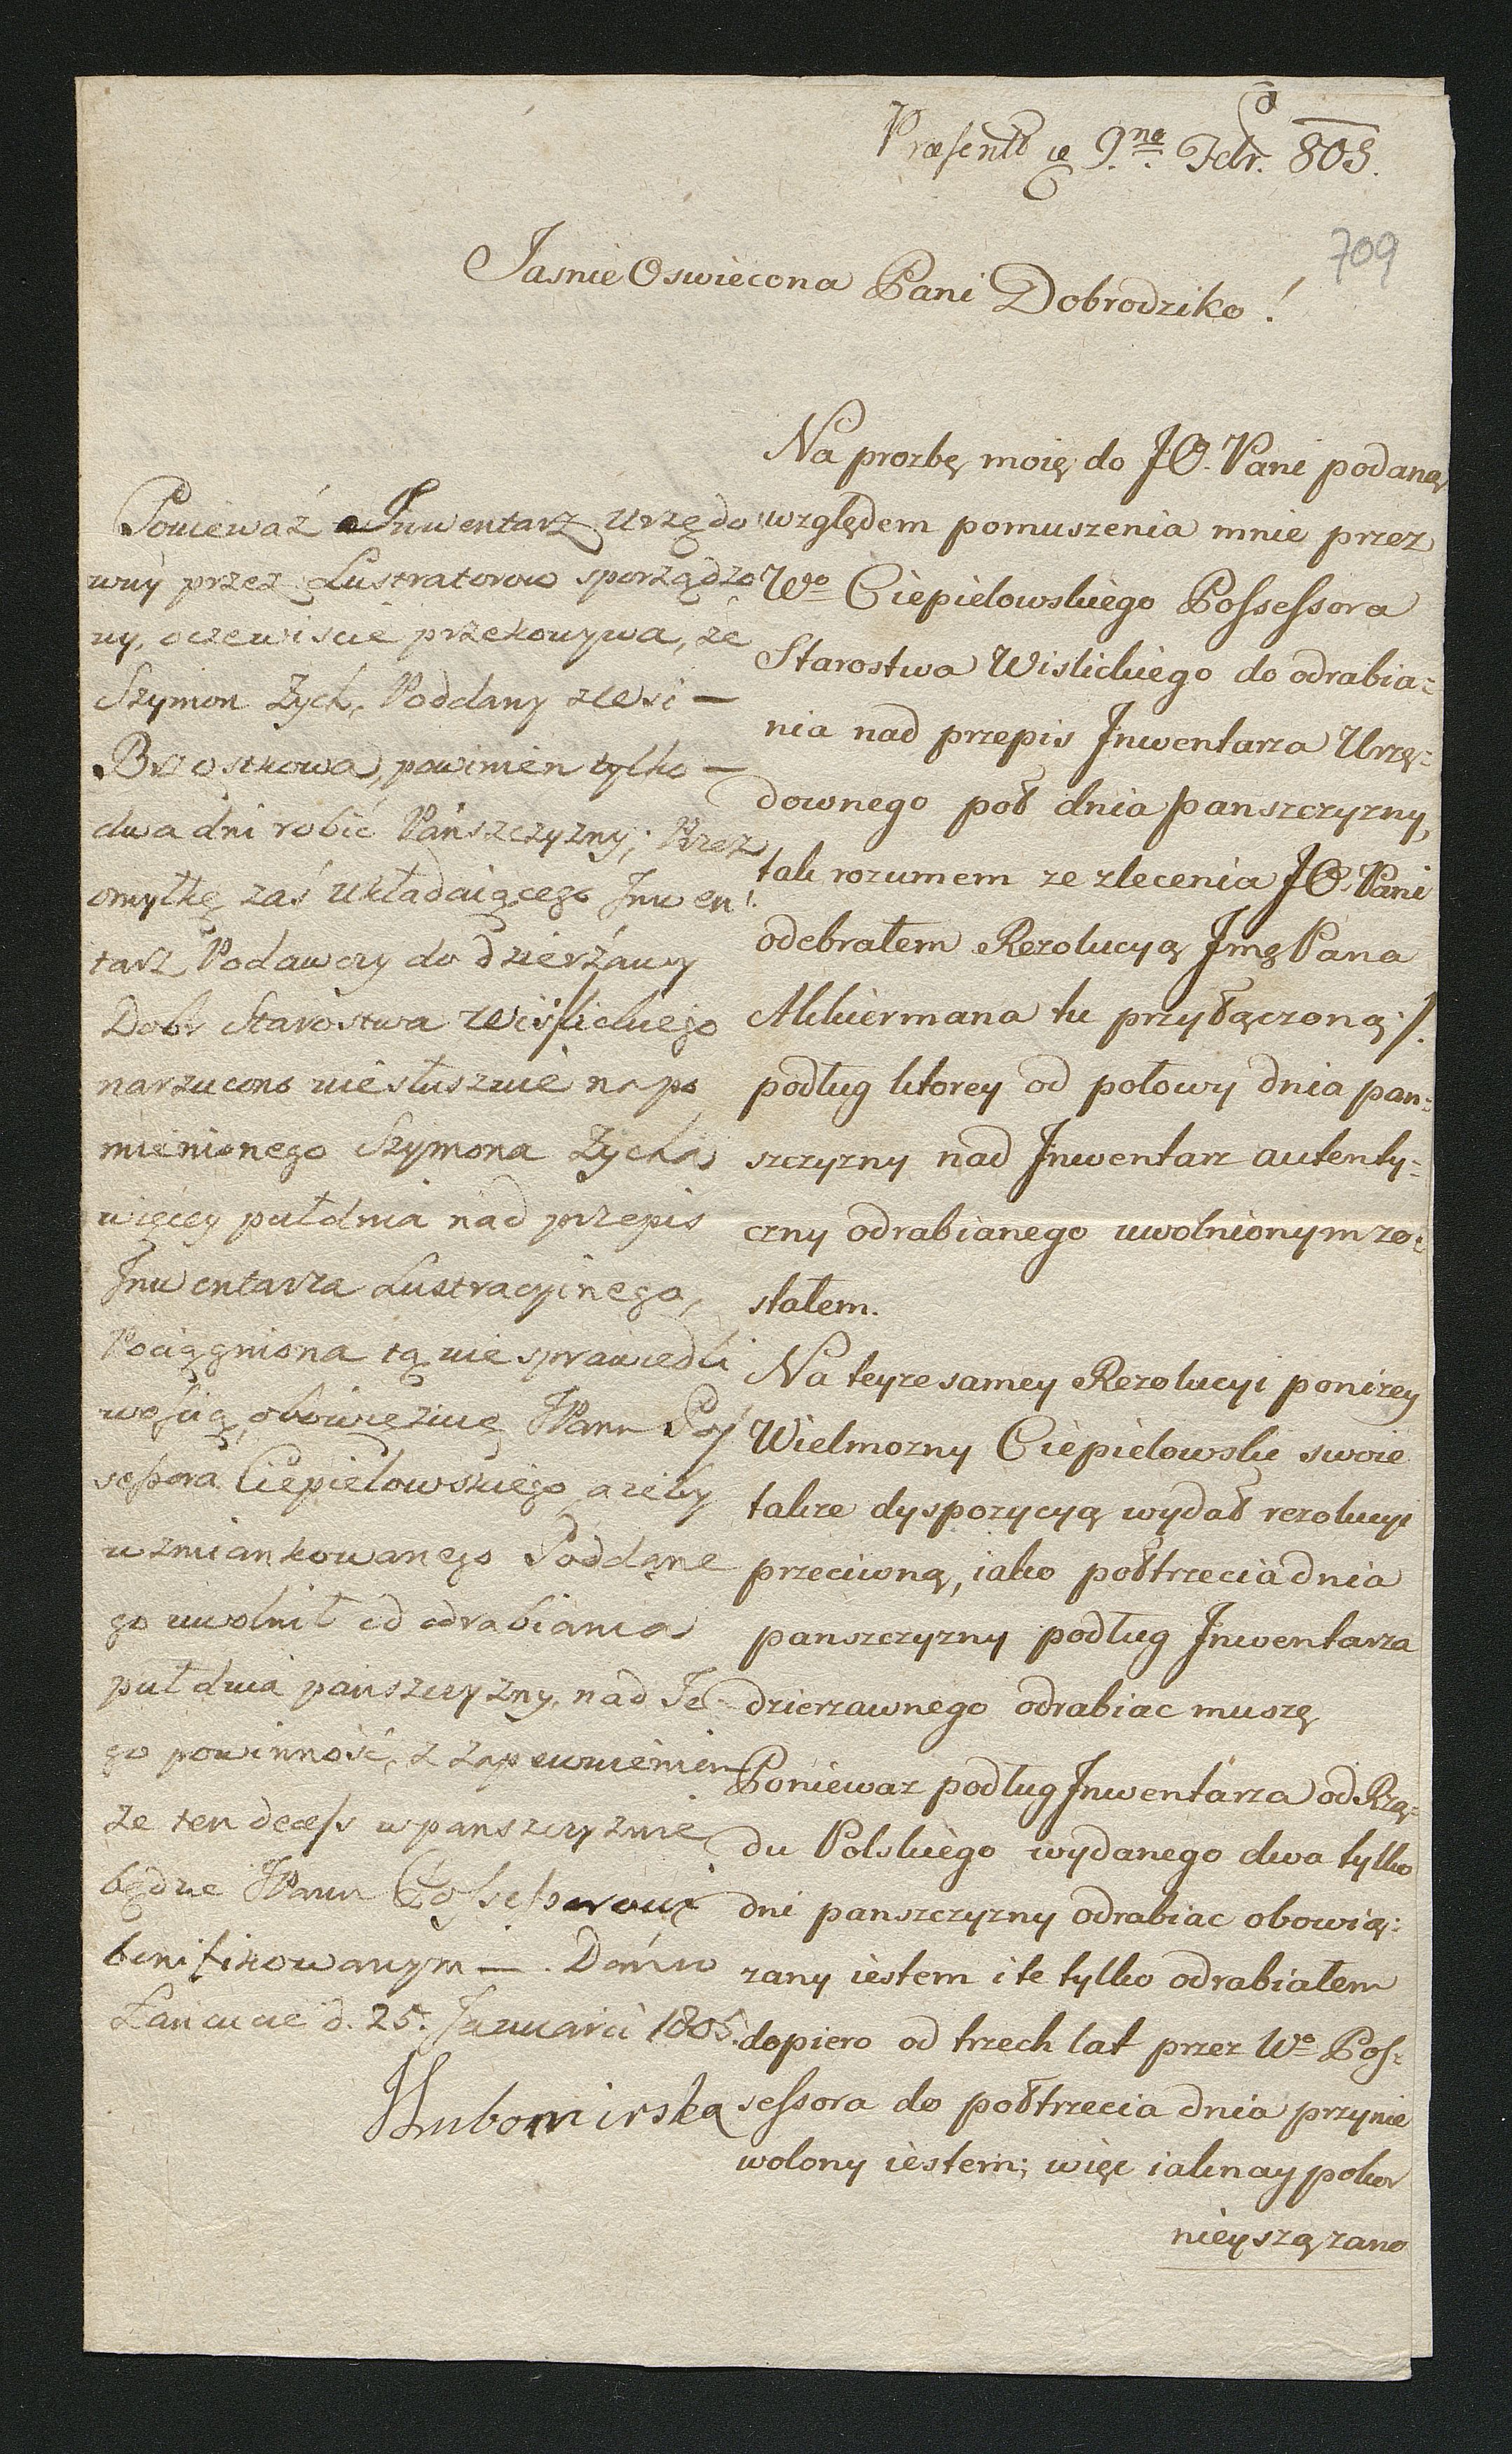 Præsentt 9.na Febr. 805.
709
Jasnie Oswiecona Pani Dobrodziko!
Na prozbę moię do JO. Pani podaną
względem pomuszenia mnie przez
Wgo Ciepielowskiego Possessora
Starostwa Wislickiego do odrabia:
nia nad przepis Inwentarza Urzę:
downego poł dnia panszczyzny,
tak rozumem ze zlecenia JO. Pani
odebrałem Rezolucyą Jmę Pana
Akkiermana tu przyłączoną ./.
podług ktorey od połowy dnia pan:
szczyzny nad Inwentarz autenty:
czny odrabianego uwolnionym zo:
stałem.
Na teyze samey Rezolucyi ponizey
Wielmozny Ciepielowski swoie
takze dyspozycyą wydał rezolucyi
przeciwną, iako połtrzecia dnia
panszczyzny podług Inwentarza
dzierzawnego odrabiac muszę
Poniewaz podług Inwentarza od Rzą:
du Polskiego wydanego dwa tylko
dni panszczyzny odrabiac obowią:
zany iestem i te tylko odrabiałem
dopiero od trzech lat przez Wo Pos:
sessora do połtrzecia dnia przynie
wolony iestem; więc iaknaypokor
nieyszą zano
Ponieważ Inwentarz urzędo
wny przez Lustratorow sporządzo
ny, oczewiscie przekonywa, ze
Szymon Zych, Poddany zewsi —
Brzostkowa, powinien tylko —
dwa dni robić Pańszczyzny; Przez
omyłkę zaś układaiącego Inwen:
tarz Podawczy do dzierżawy
Dobr Starostwa Wislickiego
narzucono niesłusznie na po
mienionego Szymona Zycha
więcey puł dnia nad przepis
Inwentarza Lustracyinego,
Pociągniona tą niesprawiedli
wością, obowięzuię JPana Pos
sessora Ciepielowskiego, ażeby
wzmiankowanego Poddane
go uwolnił od odrabiania
puł dnia panszczyzny, nad Je
go powinność, z zapewnieniem
ze ten decess w panszczyznie
będzie JPanu Possessorowi
benifikowanym —. Dan w
Łancucie d. 25. Januarii 1805.
Lubomirska